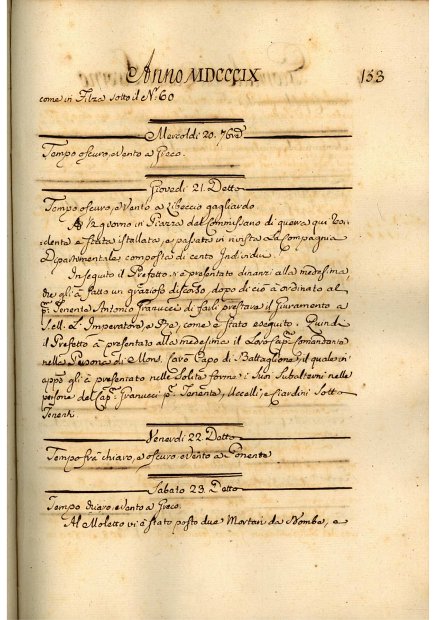 Anno MDCCCIX 153
come in Filza sotto il N: 60
Mercoldì 20. 9bre
Tempo oscuro, e Vento a Greco.
Giovedì 21. Detto
Tempo oscuro, e Vento a Libeccio gagliardo
A ½ giorno in Piazza del Commissario di guerra qui Resi-
denta è stata istallata, e passata in rivista la Compagnia
Dipartimentale composta di cento Individui.
In seguito il Prefetto si è presentato dinanzi alla medesima
che gli à fatto un grazioso discorso, dopo di ciò à ordinato al
po: Tenente Antonio Franucci di farli prestare il Giuramento a
Sell. L'Imperatore, e Rè, come è stato eseguito. Quindi
il Prefetto à presentato alla medesima il Loro Capo: Comandante
nella Persona di Mons. Capo di Battaglione, il quale in
appo gli à presentato nelle solite forme i suoi Subalterni nelle
persone del Capo: Franucci po: Tenente, Uccelli, e Ciardini Sotto
Tenenti
Venerdì 22. Detto
Tempo frà chiaro, e oscuro, e Vento a Ponente
Sabato 23. Detto
Tempo chiaro, e Vento a Greco.
Al Moletto vi è stato posto due Mortari da Bombe, e